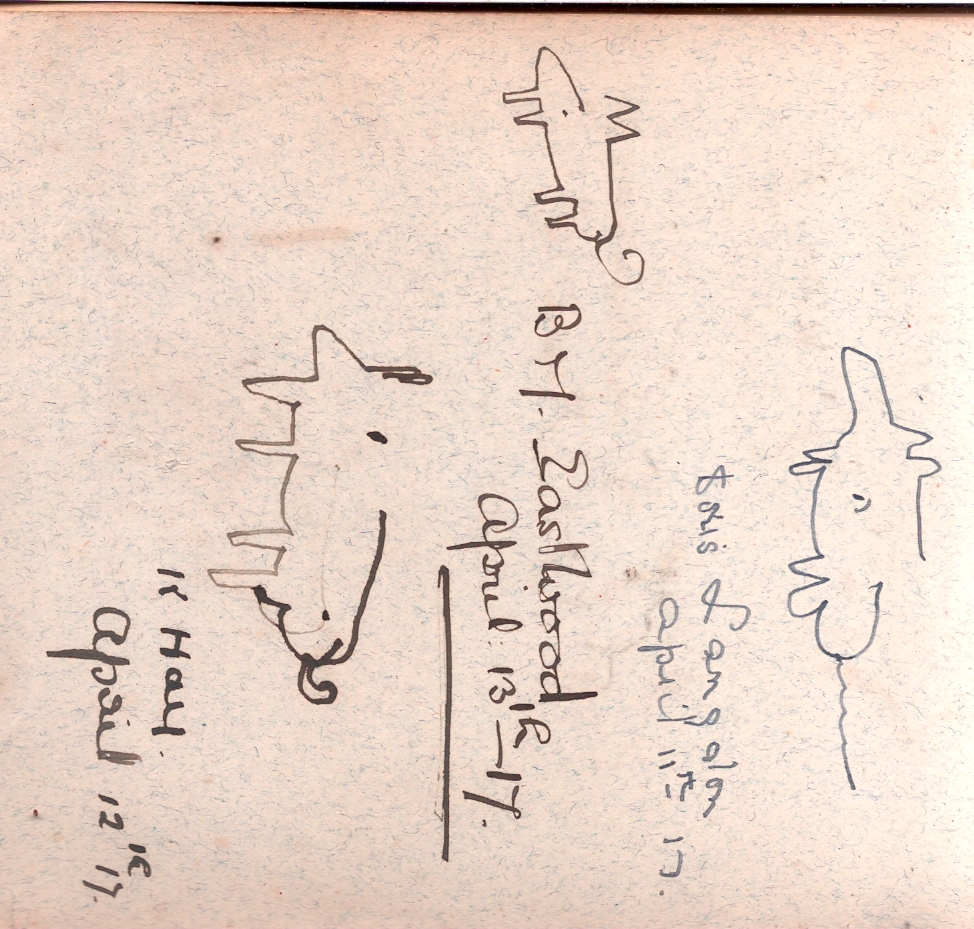 Doris Langdon
April 11th 17.
B M. Eastwood
April. 13th - 17.
K Hay.
April 12th 17.